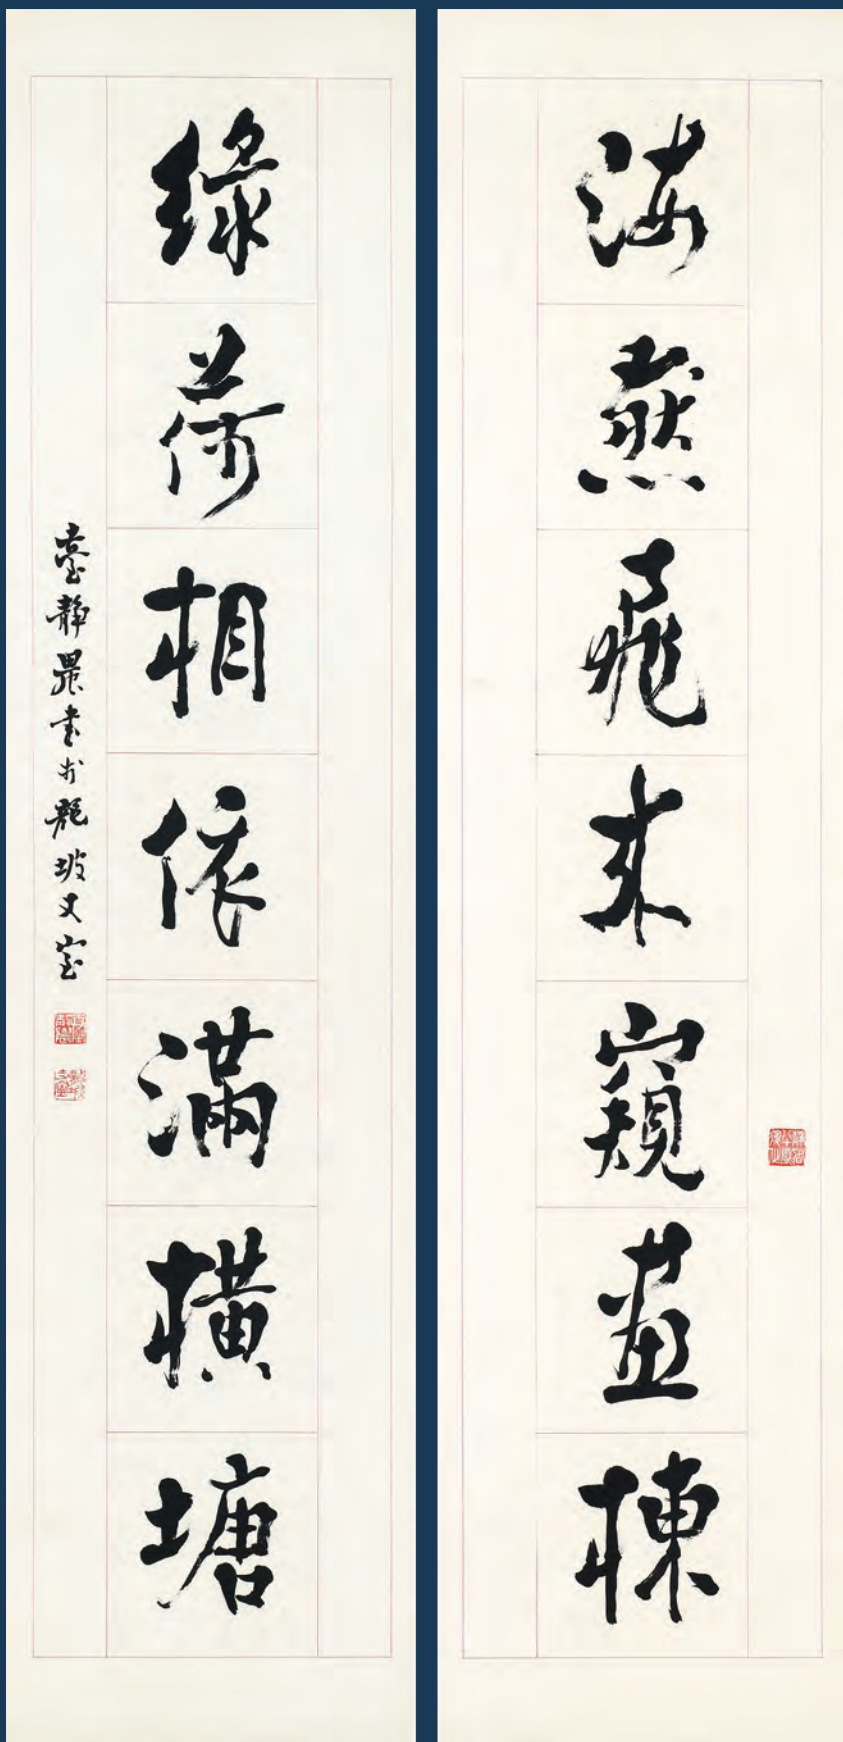 海燕飛來窺畫棟
綠荷相依滿橫塘
臺靜農書於龍坡丈室